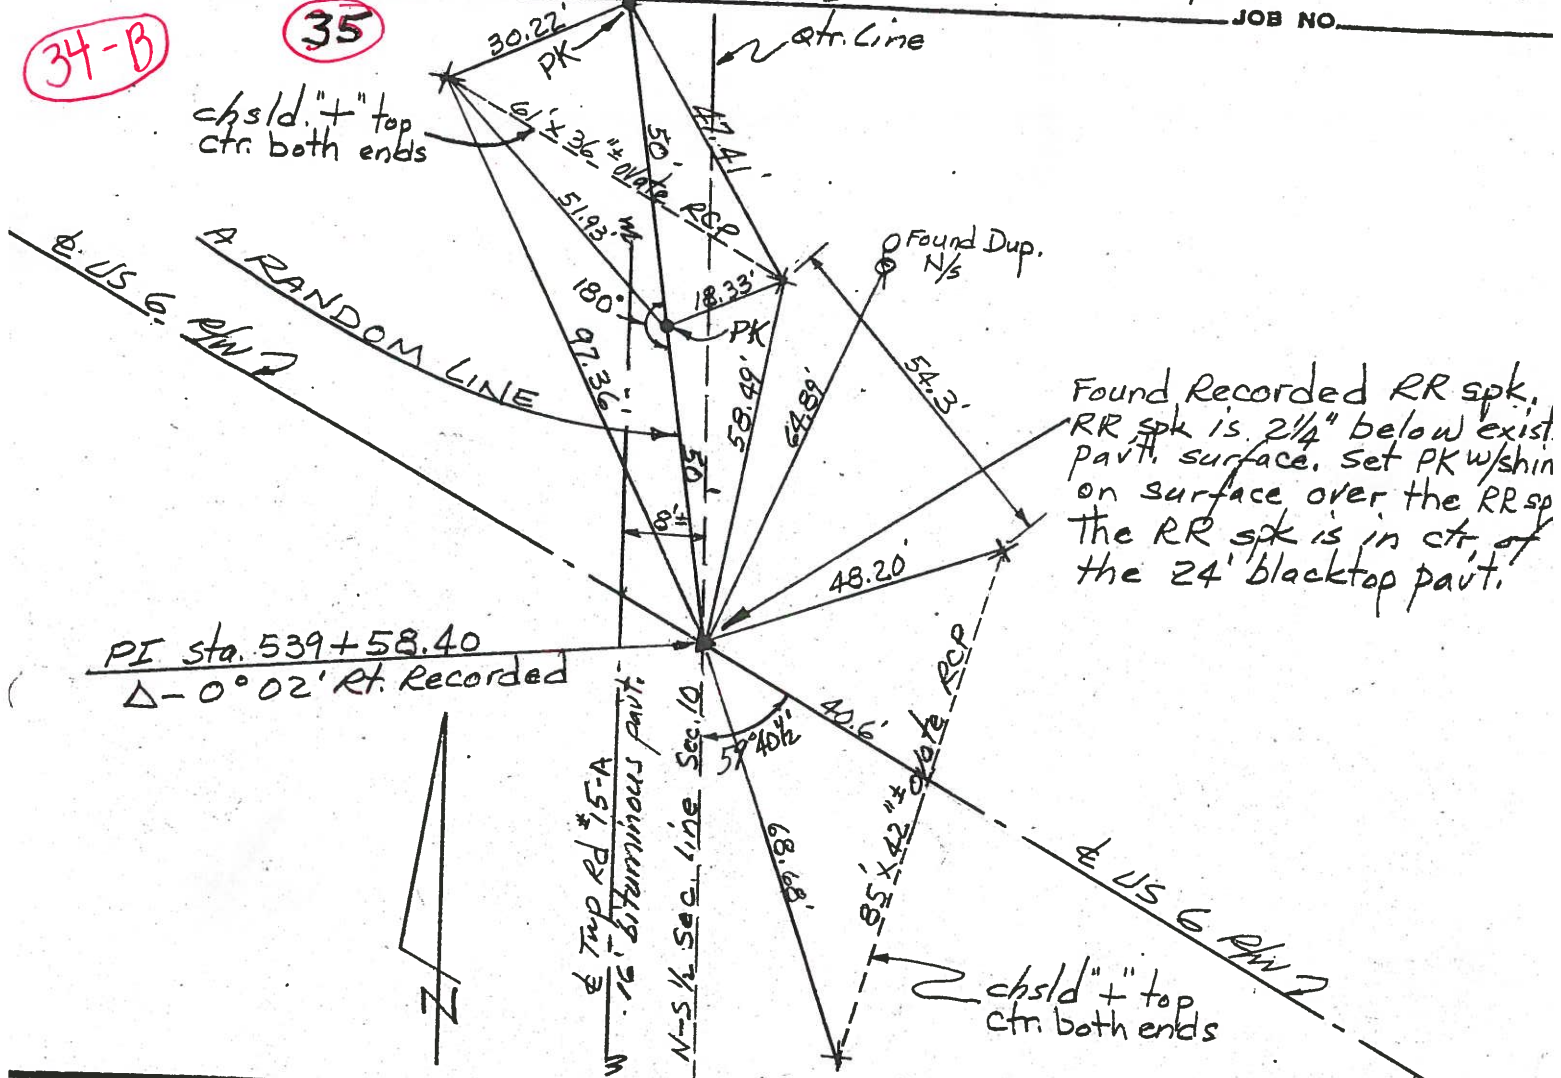 34-B
35
JOB NO.
30.22'
PK
Qtr. Line
chsld. "+" top
ctr. both ends
61' ± 36" ± Ovate RCP
50'
47.41'
51.93'
Found Dup.
N/s
℄ US 6 R/W
A RANDOM LINE
180°
18.33'
PK
97.36'
58.49'
64.89'
54.3'
50'
8'±
Found Recorded RR spk.
RR spk is 2¼" below exist.
pavt. surface. Set PK w/shin
on surface over the RR sp
The RR spk is in ctr. of
the 24' blacktop pavt.
48.20'
PI Sta. 539+58.40
Δ- 0°02' Rt. Recorded
59°40½'
40.6'
68.68'
85' X 42" ± Ovate RCP
℄ Twp Rd #15-A
16' bituminous pavt.
N-S ½ Sec. Line Sec. 10
℄ US 6 R/W
chsld "+" top
ctr. both ends
N